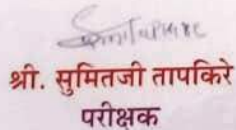 श्री. सुमितजी तापकिरे
परीक्षक